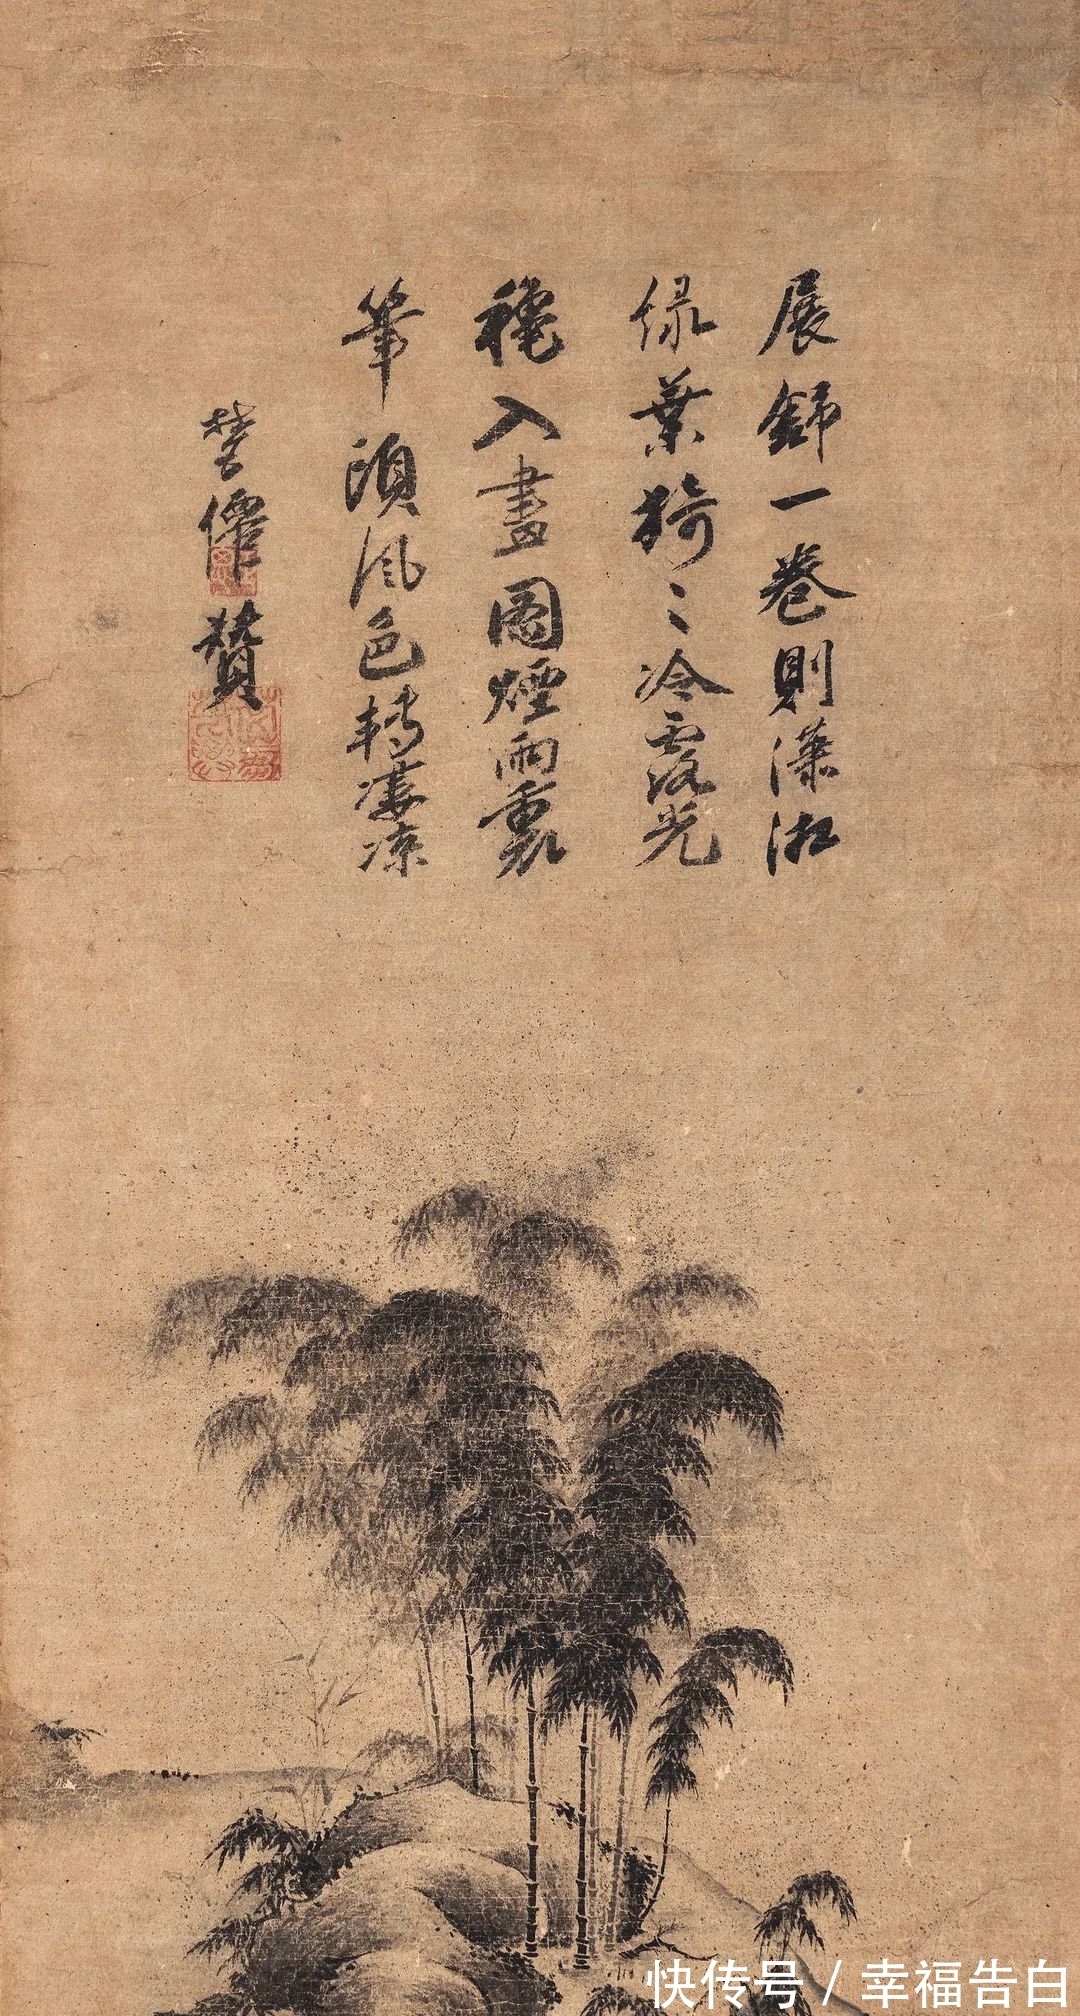 展舒一卷則瀟湘
緑葉猗〻冷露光
穐入畫圖煙雨裏
筆頭風色轉凄凉
楚僊贊
快传号 / 幸福告白